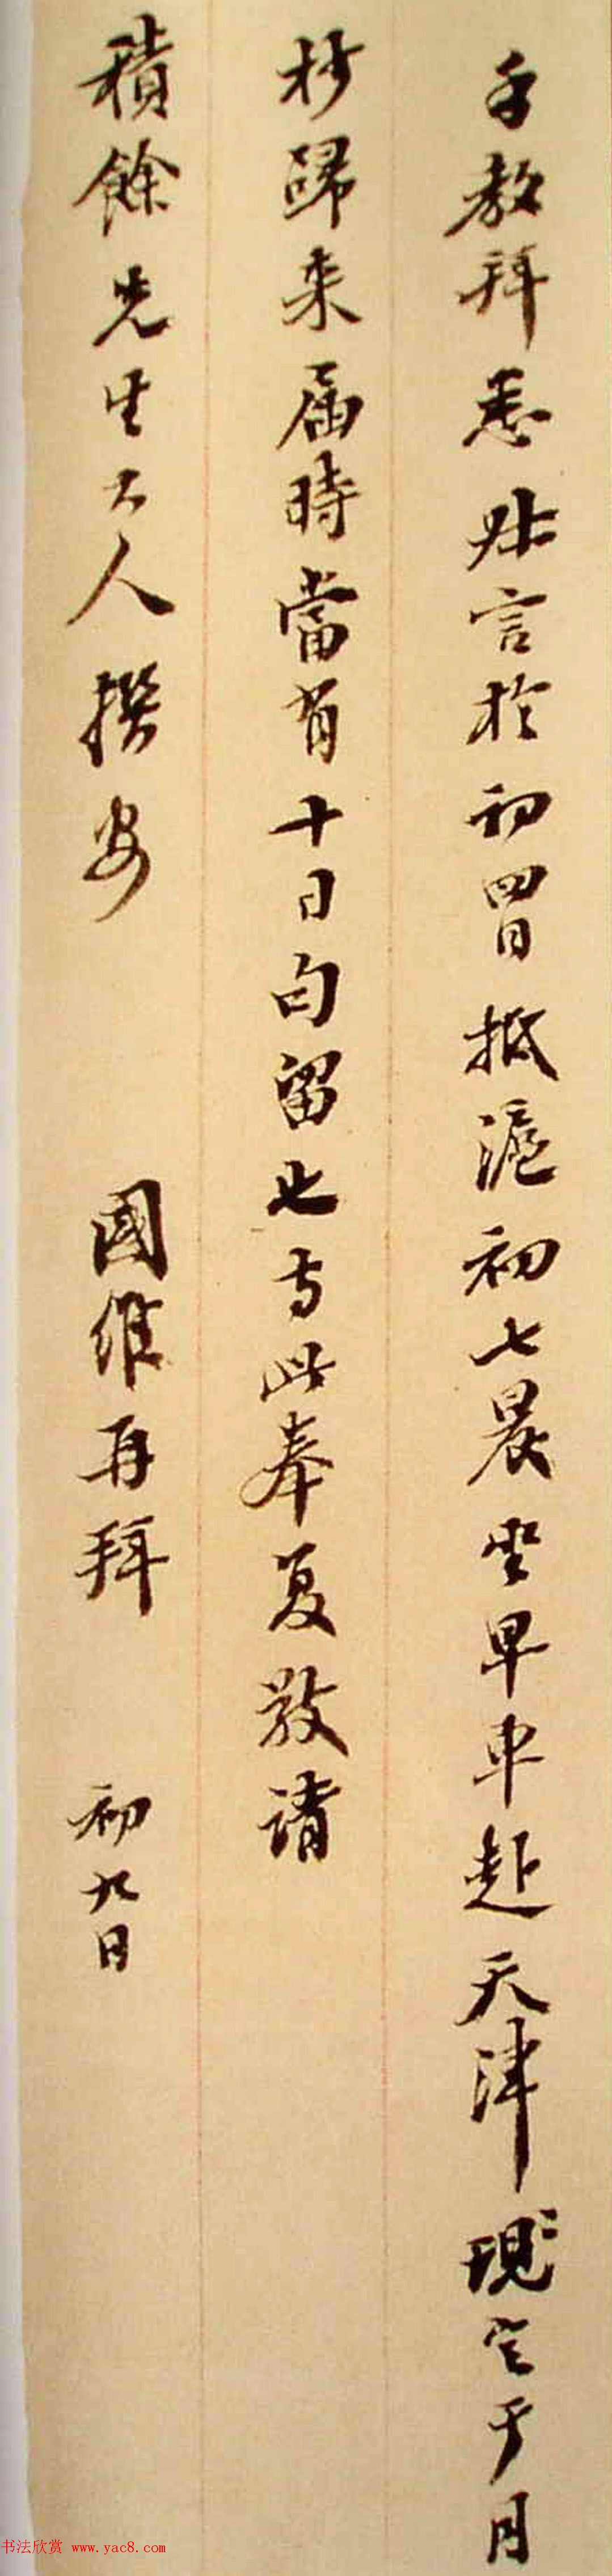 手教拜悉叔言於初四日抵滬初七晨坐早車赴天津現定于月
杪歸来届時當有十日句留也專此奉复敬請
積餘先生大人撰安 國維再拜 初九日
书法欣赏 www.yac8.com